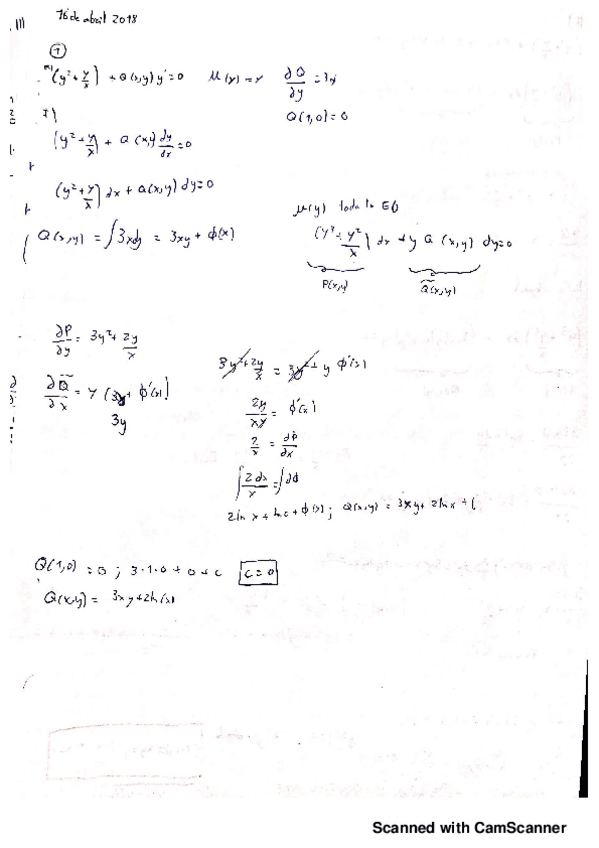 16 de abril 2018
1
(y² + y/x) + Q(x,y) y' = 0   μ(y) = y   ∂Q/∂y = 3x
Q(1,0) = 0
(y² + y/x) + Q(x,y) dy/dx = 0
(y² + y/x) dx + Q(x,y) dy = 0
μ(y) toda la ED
Q(x,y) = ∫3xdy = 3xy + ϕ(x)
(y³ + y²/x) dx + y Q(x,y) dy = 0
P(x,y)   Q̃(x,y)
∂P/∂y = 3y² + 2y/x
3y² + 2y/x = 3y² + y ϕ'(x)
∂Q̃/∂x = y (3y + ϕ'(x))
3y
2y/xy = ϕ'(x)
2/x = dϕ/dx
∫2dx/x = ∫dϕ
Q(x,y) = 3xy + 2lnx + C
Q(1,0) = 0 ; 3·1·0 + 0 + c   c = 0
Q(x,y) = 3xy + 2ln(x)
Scanned with CamScanner